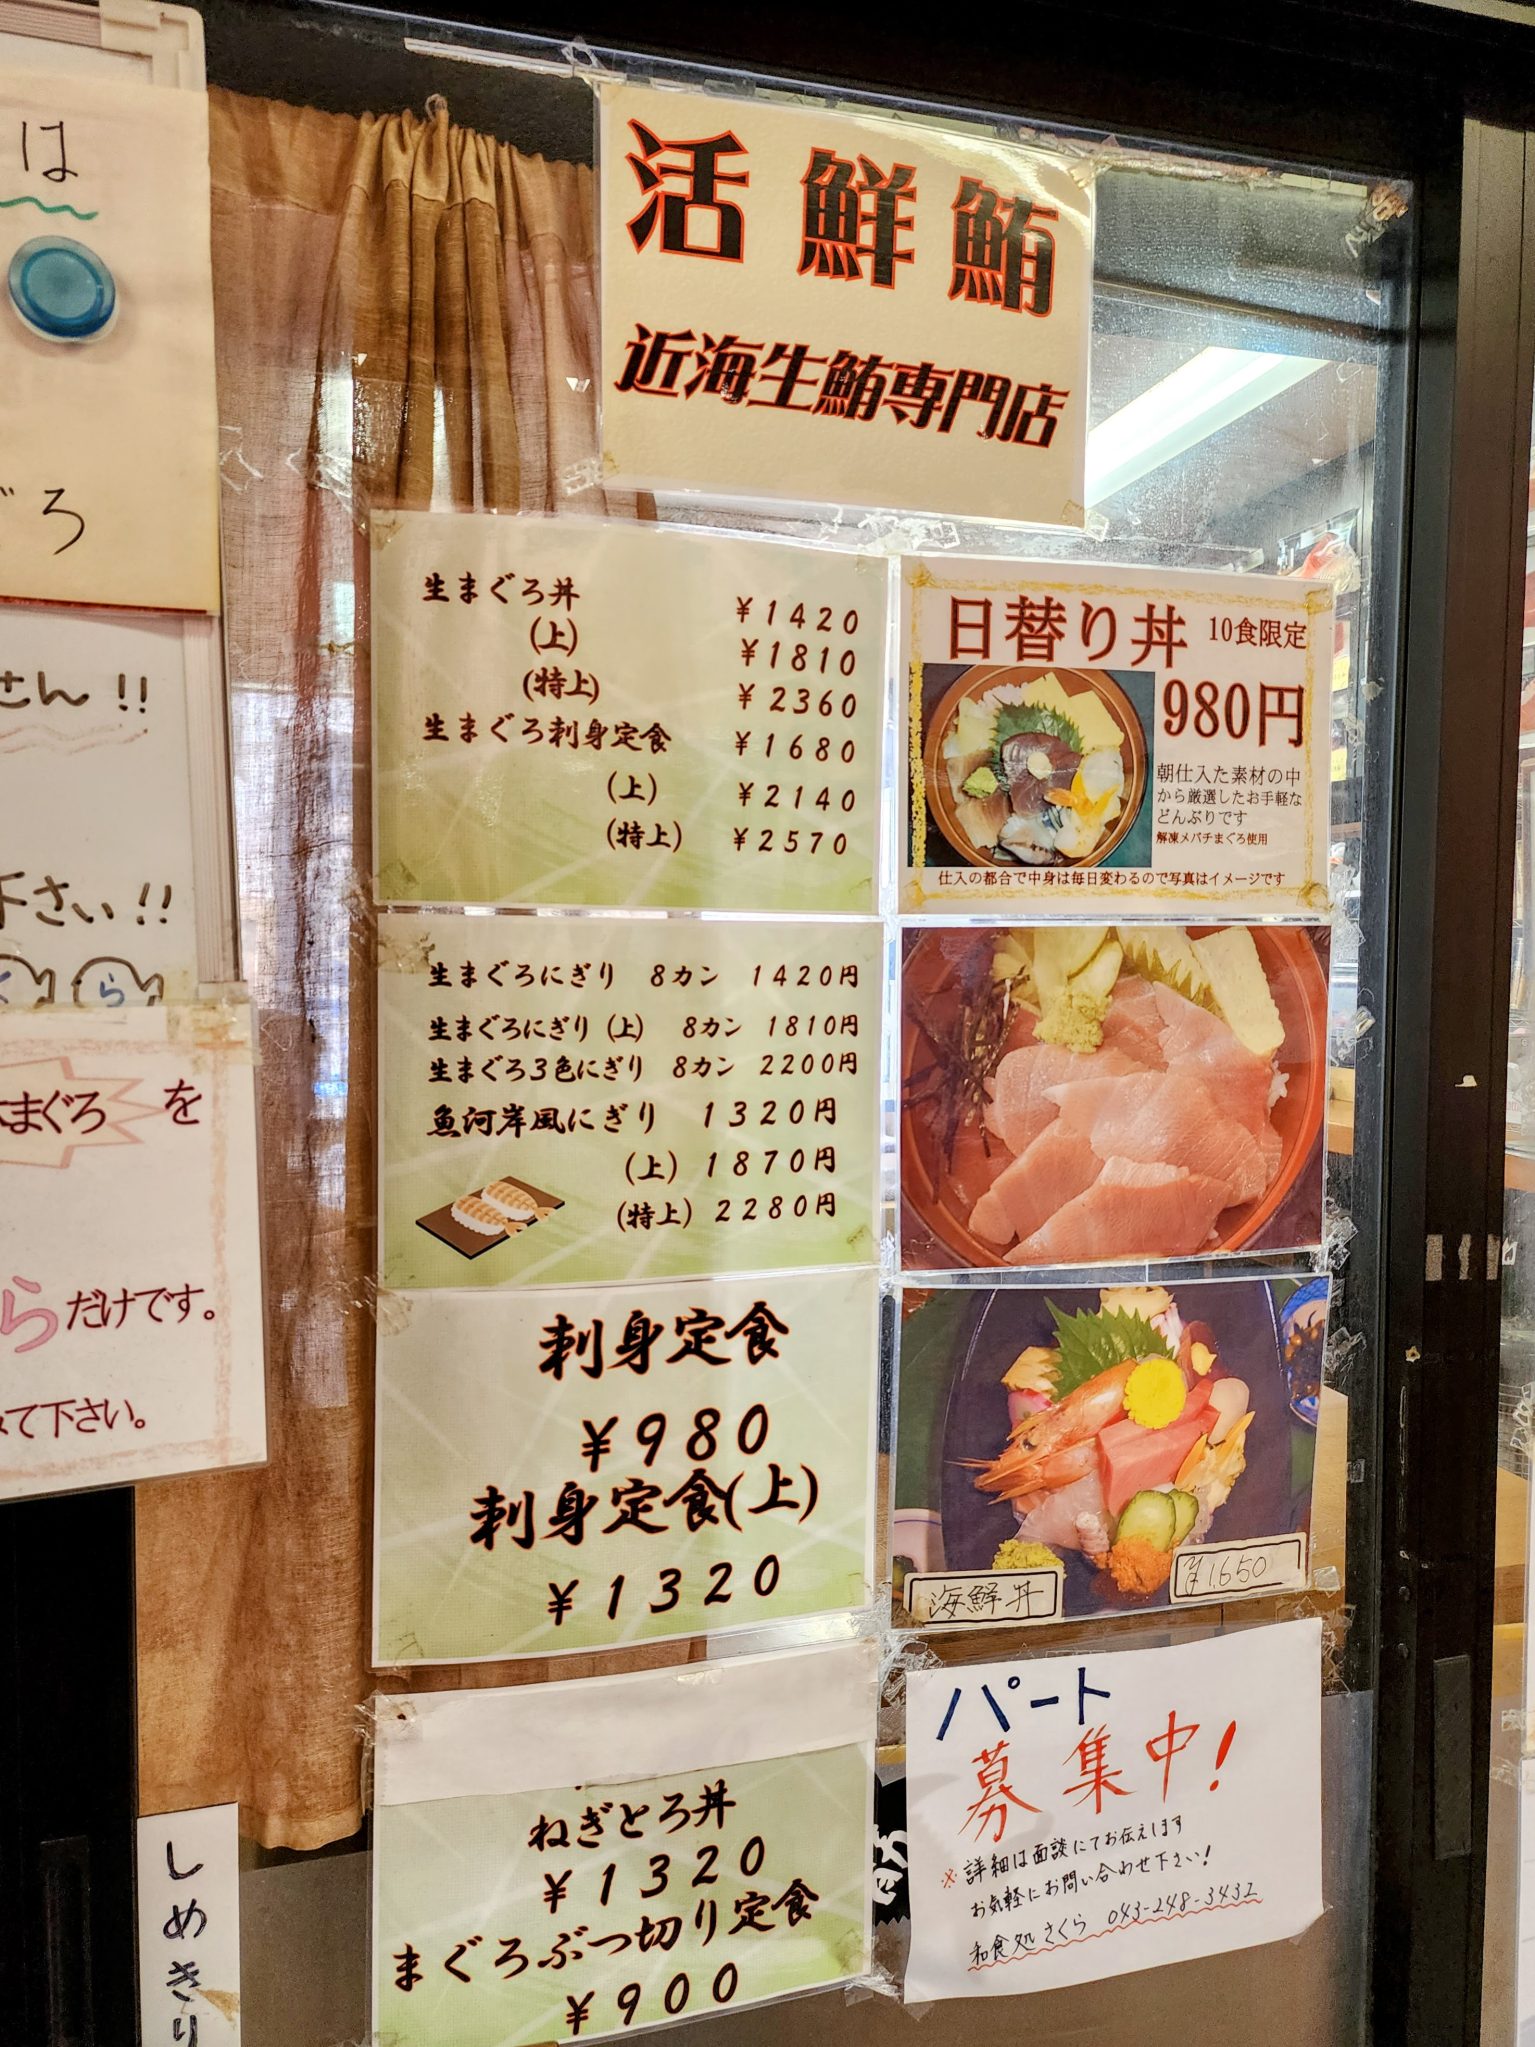 は
ごろ
さん!!
下さい!!
くら
まぐろ を
らだけです。
みて下さい。
しめきり
活鮮鮪
近海生鮪専門店
生まぐろ丼 ¥1420
(上) ¥1810
(特上) ¥2360
生まぐろ刺身定食 ¥1680
(上) ¥2140
(特上) ¥2570
日替り丼 10食限定
980円
朝仕入た素材の中
から厳選したお手軽な
どんぶりです
解凍メバチまぐろ使用
仕入の都合で中身は毎日変わるので写真はイメージです
生まぐろにぎり 8カン 1420円
生まぐろにぎり(上) 8カン 1810円
生まぐろ3色にぎり 8カン 2200円
魚河岸風にぎり 1320円
(上) 1870円
(特上) 2280円
刺身定食
¥980
刺身定食(上)
¥1320
海鮮丼 ¥1,650
ねぎとろ丼
¥1320
まぐろぶつ切り定食
¥900
パート
募集中!
※詳細は面談にてお伝えします
お気軽にお問い合わせ下さい!
和食処さくら 043-248-3432